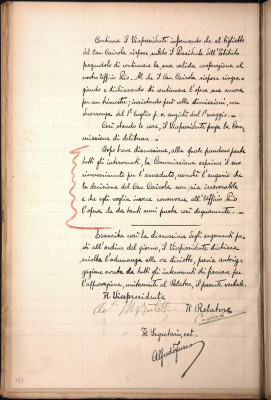 Continua il Vicepresidente informando che al biglietto
del Cav. Cariola rispose subito il Presidente dell'Istituto
pregandolo di continuare la sua valida cooperazione al
nostro Ufficio Pio. Al che il Cav. Cariola rispose ringra-
ziando e dichiarando di continuare l'opera sua ancora
per un bimestre; insistendo però nelle dimissioni, con
decorrenza dal 1º luglio p. v. anziché dal 1º maggio. —
Così stando le cose, il Vicepresidente prega la Com-
missione di deliberare. —
Dopo breve discussione, alla quale prendono parte
tutti gli intervenuti, la Commissione esprime il suo
rincrescimento per l'accaduto, nonché l'augurio che
la decisione del Cav. Cariola non sia irrevocabile
e che egli voglia invece conservare all'Ufficio Pio
l'opera da da tanti anni presta così degnamente. —
Esaurita così la discussione degli argomenti po-
sti all'ordine del giorno, il Vicepresidente dichiara
sciolta l'adunanza alle ore diciotto, previa autoriz-
zazione avuta da tutti gli intervenuti di firmare per
l'approvazione, unitamente al Relatore, il presente verbale.
Il Vicepresidente
Il Relatore
Il Segretario, est.